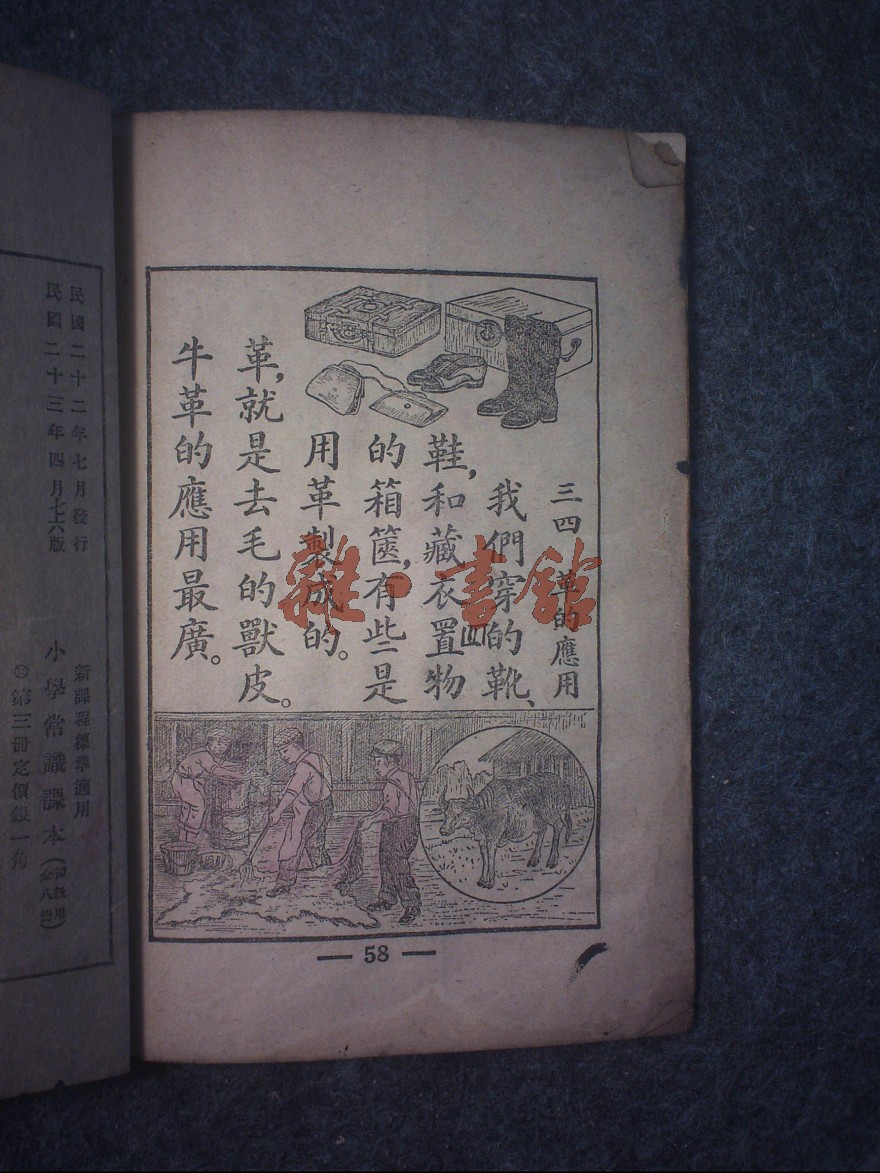 三四　革的應用
我們穿的靴、
鞋,和藏衣置物
的箱篋,有些是
用革製成的。
革,就是去毛的獸皮。
牛革的應用最廣。
— 58 —
民國二十二年七月發行
民國二十三年四月七六版
新課程標準適用
小學常識課本(初級用 全八冊)
第三冊定價銀一角
雜·書館